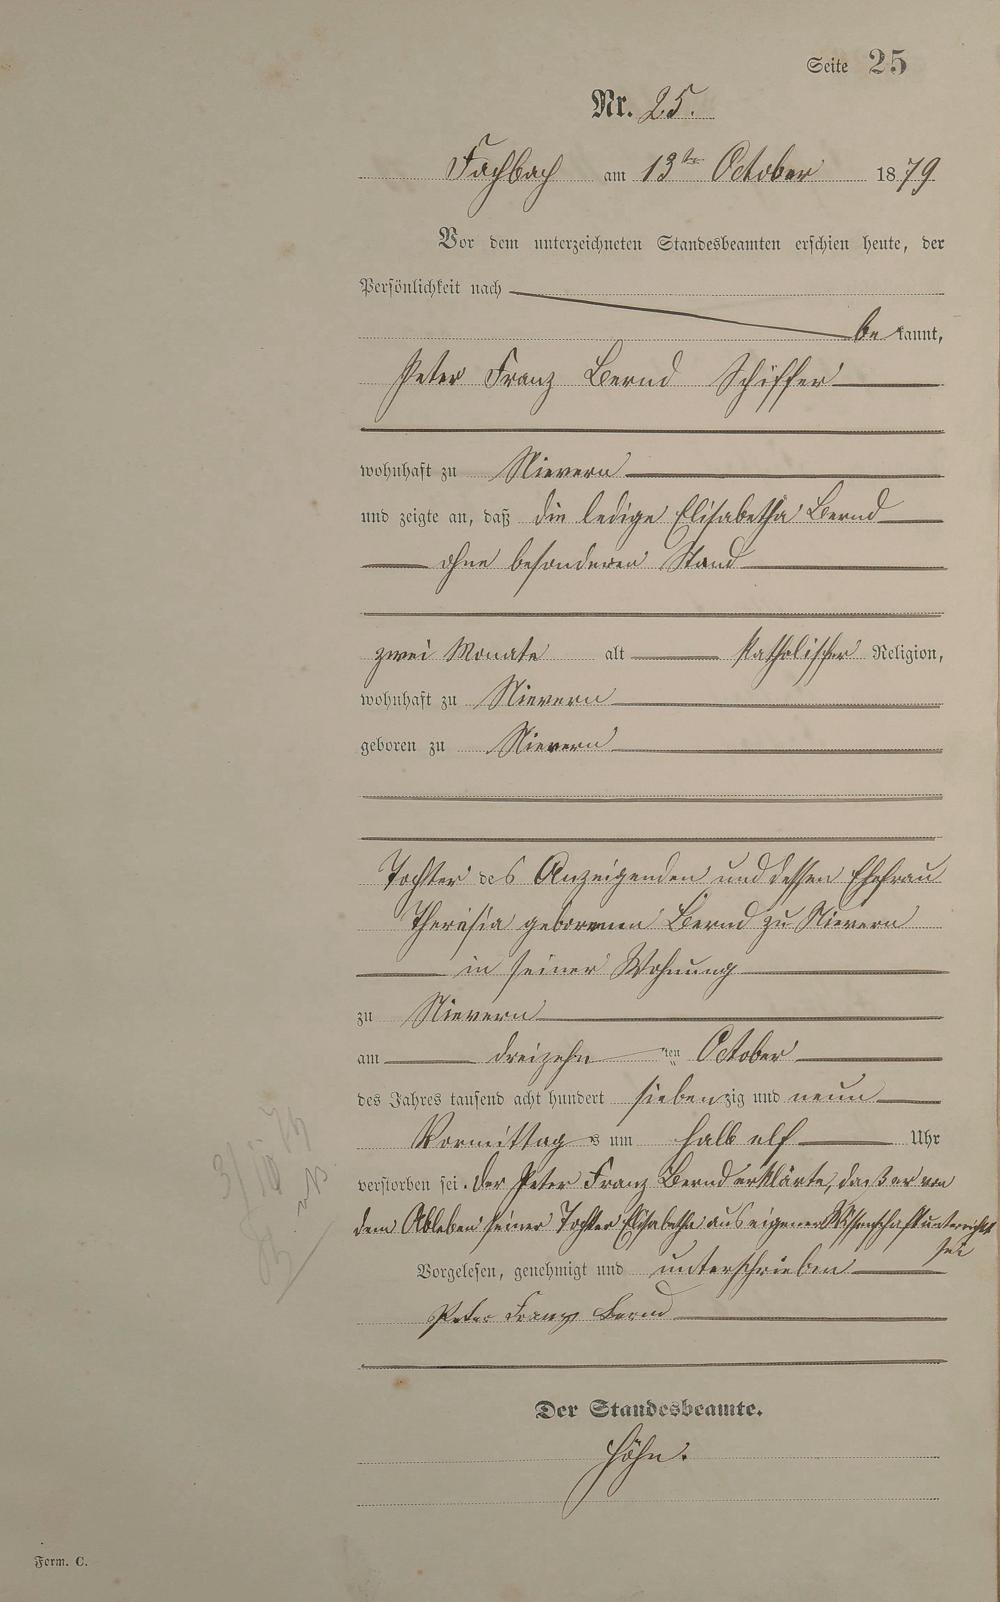 Seite 25
Nr. 25.
Fachbach am 13ten October 1879
Vor dem unterzeichneten Standesbeamten erschien heute, der
Persönlichkeit nach
bekannt,
Peter Franz Bernd Schiffer
wohnhaft zu Nievern
und zeigte an, daß die ledige Elisabetha Bernd
ohne besonderen Stand
zwei Monate alt katholischer Religion,
wohnhaft zu Nievern
geboren zu Nievern
Tochter des Anzeigenden und dessen Ehefrau
Theresia geborenen Bernd zu Nievern
in seiner Wohnung
zu Nievern
am dreizehn ten October
des Jahres tausend acht hundert siebenzig und neun
Vormittags um halb elf Uhr
verstorben sei. Der Peter Franz Bernd erklärte, daß er von
dem Ableben seiner Tochter Elisabetha aus eigener Wissenschaft unterrichtet
sei
Vorgelesen, genehmigt und unterschrieben
Peter Franz Bernd
Der Standesbeamte.
Höhn.
Form. C.